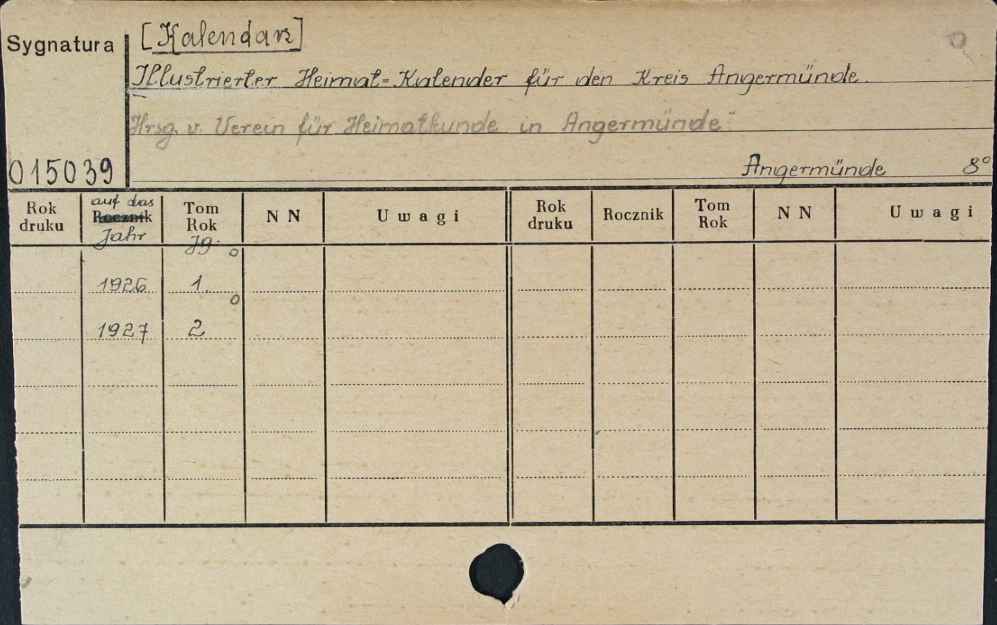 Sygnatura
[Kalendarz]
Illustrierter Heimat=Kalender für den Kreis Angermünde.
Hrsg. v. Verein für Heimatkunde in Angermünde.
015039
Angermünde 8°
Rok druku auf das Rocznik Jahr Tom Rok Jg. NN Uwagi Rok druku Rocznik Tom Rok NN Uwagi
1926 1
1927 2